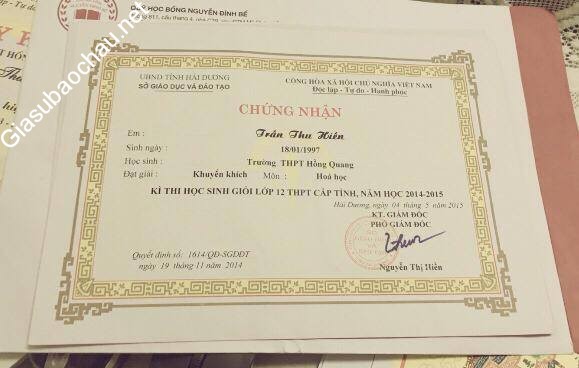 QUỸ HỌC BỔNG NGUYỄN ĐÌNH BỂ
Giasubaochau.net
UBND TỈNH HẢI DƯƠNG
SỞ GIÁO DỤC VÀ ĐÀO TẠO
CỘNG HÒA XÃ HỘI CHỦ NGHĨA VIỆT NAM
Độc lập - Tự do - Hạnh phúc
CHỨNG NHẬN
Em : Trần Thu Hiền
Sinh ngày : 18/01/1997
Học sinh : Trường THPT Hồng Quang
Đạt giải : Khuyến khích Môn : Hoá học
KÌ THI HỌC SINH GIỎI LỚP 12 THPT CẤP TỈNH, NĂM HỌC 2014-2015
Hải Dương, ngày 04 tháng 5 năm 2015
KT. GIÁM ĐỐC
PHÓ GIÁM ĐỐC
Quyết định số: 1614/QĐ-SGDĐT
ngày 19 tháng 11 năm 2014
Nguyễn Thị Hiền